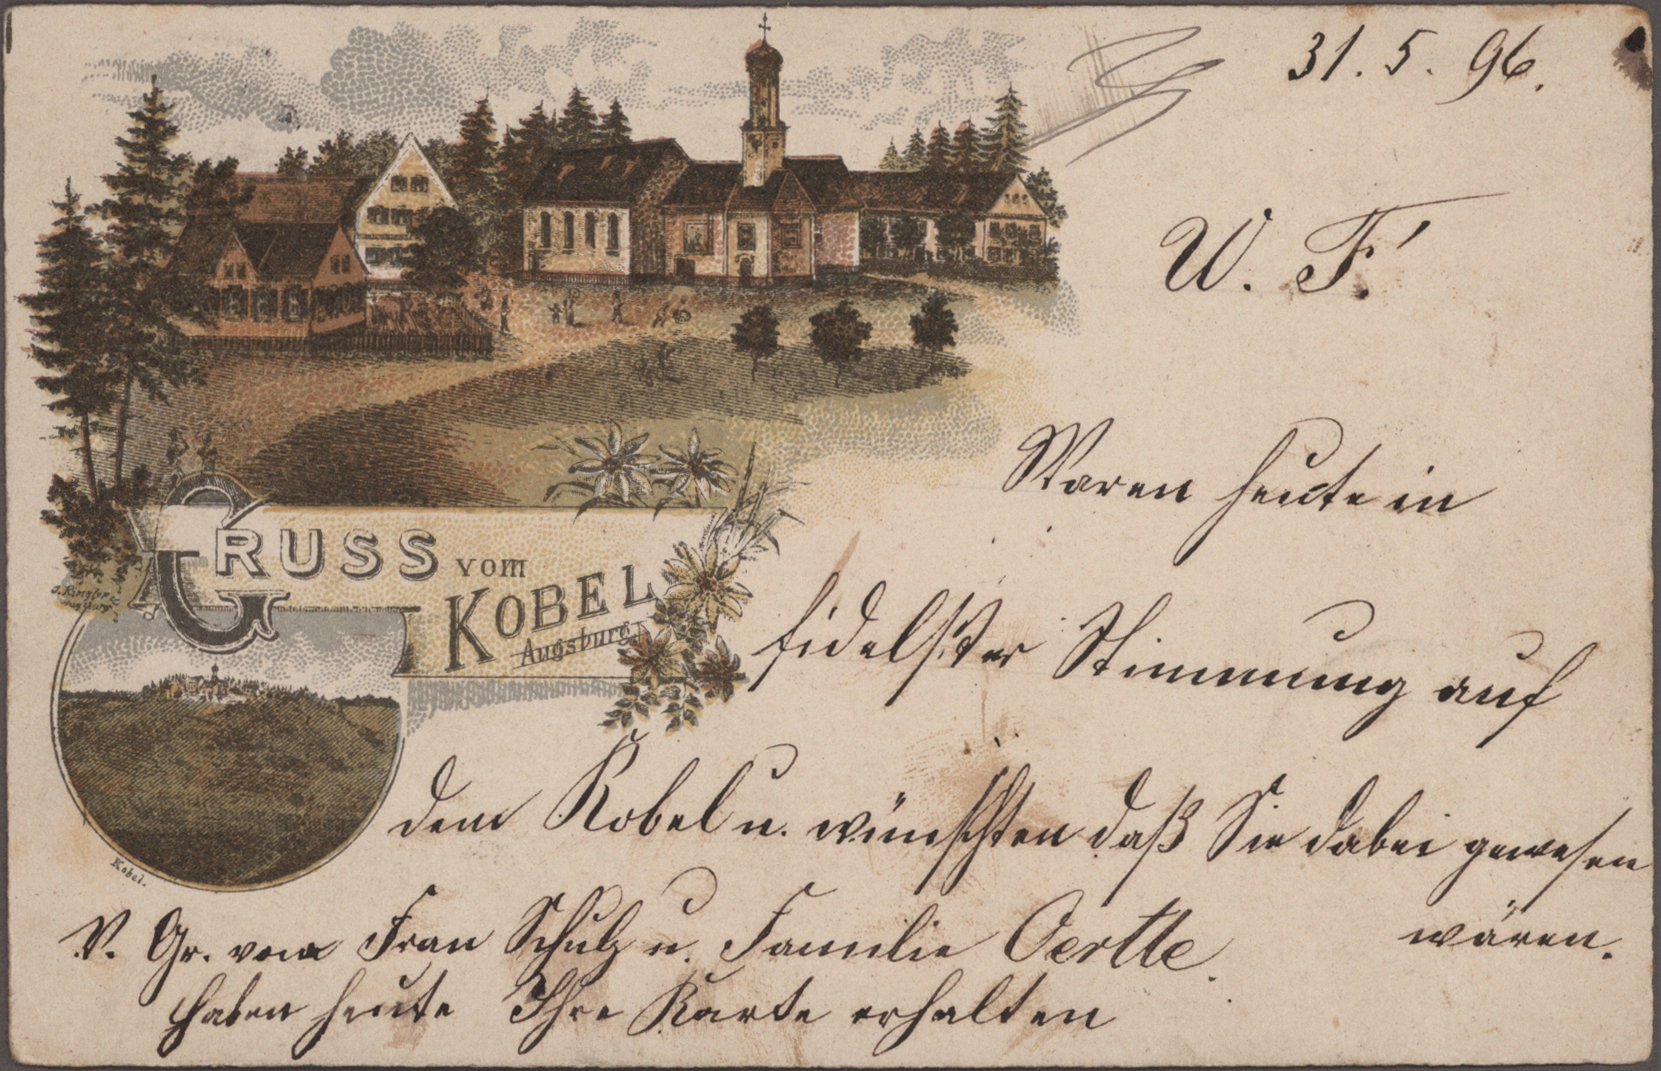 31. 5. 96.
W. F.
Waren heute in
fidelster Stimmung auf
dem Kobel u. wünschten daß Sie dabei gewesen
wären.
V. Gr. von Frau Schulz u. Familie Oertle.
haben heute Ihre Karte erhalten
GRUSS VOM
KOBEL
Augsburg
Kobel.